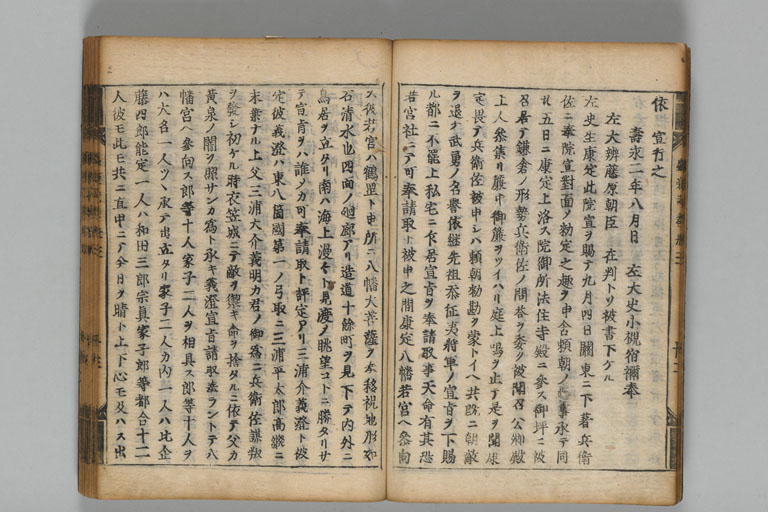 依 宣行之
壽永二年八月日 左大史小槻宿禰奉
左大辨藤原朝臣 在判トソ被書下ケル
左史生康定此院宣ヲ賜テ九月四日關東ニ下著兵衛
佐ニ奉院宣對面ノ勅定之趣ヲ申含頼朝ノ事承テ同
廿五日ニ康定上洛ス院御所法住寺殿ニ參ス御坪ニ被
召居テ鎌倉ノ形勢兵衛佐ノ問答ヲ委ク被聞召公卿殿
上人參集リ簾中御簾ヲツイハリ庭上鳴ヲ止テ是ヲ聞
定畏テ兵衛佐被申シハ頼朝勅勘ヲ蒙トイヘ共朝敵
ヲ退ケ武勇ノ名譽依繼先祖忝征夷將軍ノ宣旨ヲ下賜
ル都ニ不罷上私宅ニ乍居宣旨ヲ奉請取事天命有其恐
若宮社ニテ可奉請取ト被申之間康定八幡若宮ヘ參向
ス彼若宮ハ鶴置ト申所ニ八幡大菩薩ヲ奉移祝地形如
石清水也四面ノ廻廊アリ造道十餘町ヲ見下テ内外ニ
鳥居ヲ立タリ南ハ海上漫々ト見渡ノ眺望コトニ勝タリサ
テ宣旨ヲハ誰メカ可奉請取ト評定アリ三浦介義澄ト被
定彼義澄ハ東八箇國第一ノ弓取ニ三浦平太郎高繼ニ
末葉ナル上父三浦大介義明カ君ノ御爲ニ兵衛佐謀叛
ヲ發シ初ケル時衣笠城ニテ敵ヲ禦キ命ヲ捨タルニ依テ父カ
黄泉ノ闇ヲ照サンカ爲トソ承キ義澄宣旨請取奉ラントテ八
幡宮ヘ參向ス郎等十人家子二人ヲ相具ス郎等十人ヲ
ハ大名一人ツヽソ承テ出立タリ家子二人カ内一人ハ比企
藤四郎能定一人ハ和田三郎宗眞家子郎等都合十二
人彼モ此モ共ニ直申ニテ今日ヲ晴ト上下心モ及ハス出